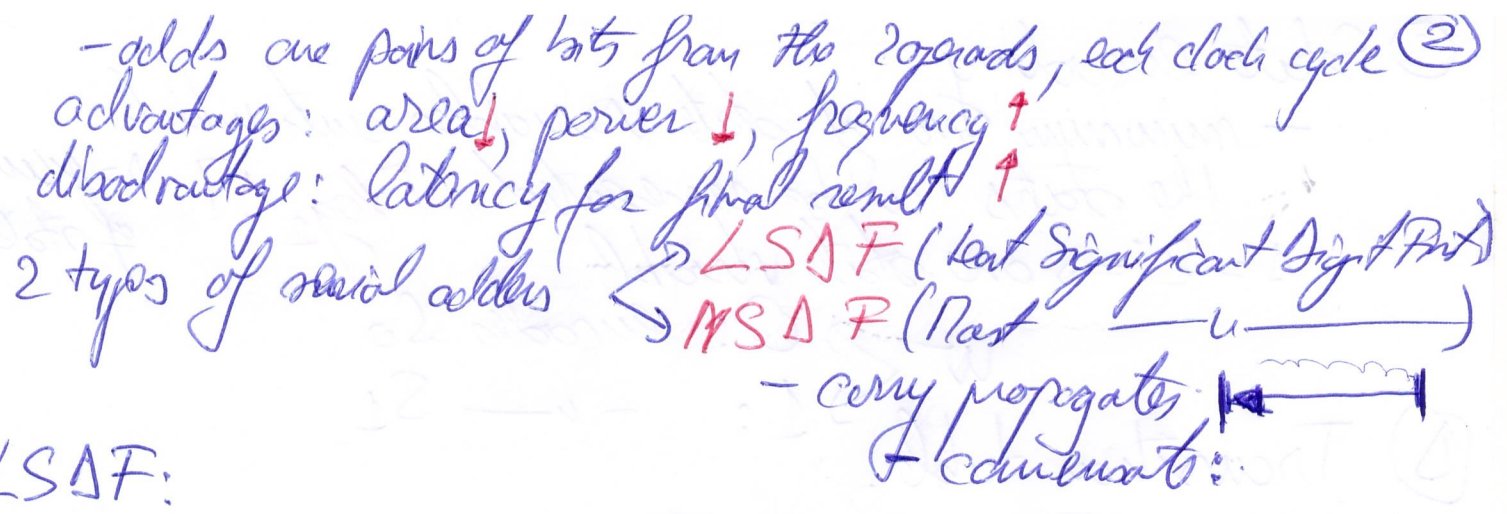 - adds one pairs of bits from the 2operands, each clock cycle ②
advantages: area↓, power ↓, frequency ↑
disadvantage: latency for final result ↑
2 types of serial adders → LSDF (Least Significant Digit First)
→ MSDF (Most —— " ——)
- carry propagates
LSDF: